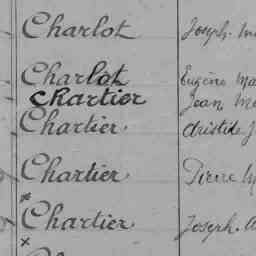 Charlot Joseph
Charlot Eugène
Chartier Jean
Chartier Aristide J
Chartier Pierre
Chartier Joseph. A